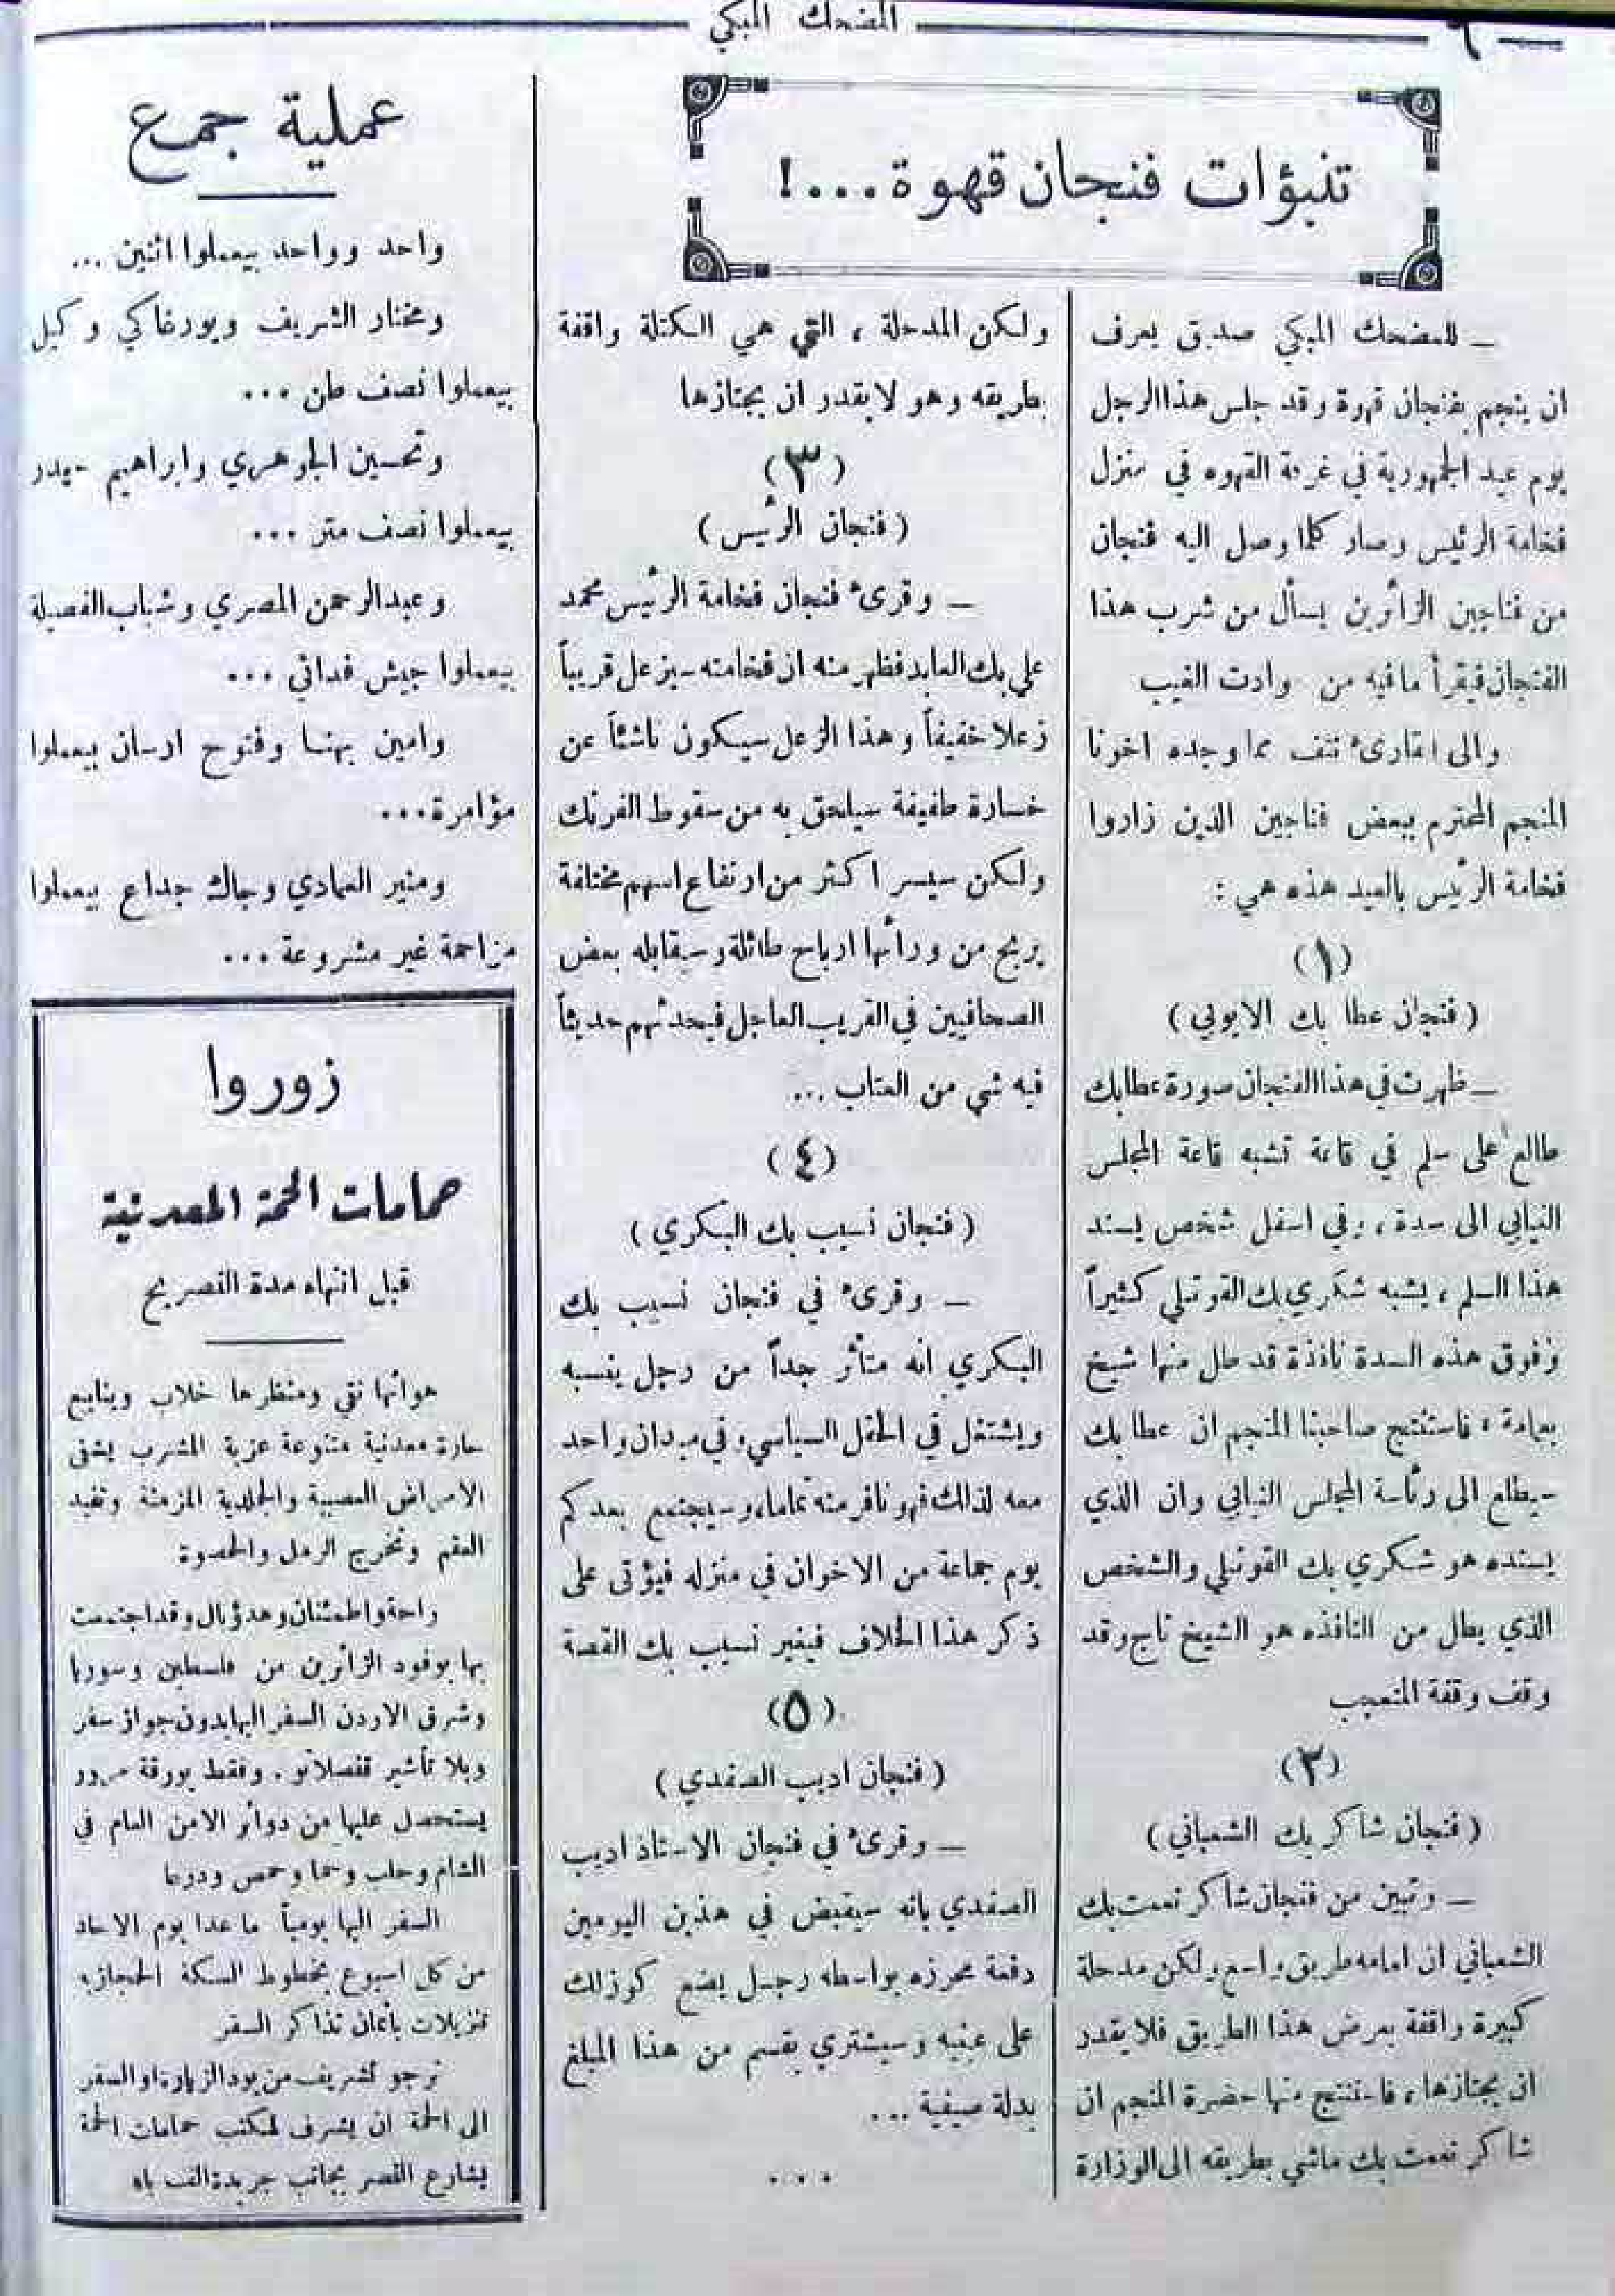 ٦
المضحك المبكي
تنبؤات فنجان قهوة...!
ـ للمضحك المبكي صديق يعرف
ان ينجم بفنجان قهوة وقد جلس هذا الرجل
يوم عيد الجمهورية في غرفة القهوه في منزل
فخامة الرئيس وصار كلما وصل اليه فنجان
من فناجين الزائرين يسأل من شرب هذا
الفنجان فيقرأ ما فيه من وادت الغيب
والى القارىء نتف مما وجده اخونا
المنجم المحترم ببعض فناجين الذين زاروا
فخامة الرئيس بالعيد هذه هي :
(١)
( فنجان عطا بك الايوبي )
ـ ظهرت في هذا الفنجان صورة عطا بك
طالع على سلم في قاعة تشبه قاعة المجلس
النيابي الى سدة ، وفي اسفل شخص يسند
هذا السلم ، يشبه شكري بك القوتلي كثيراً
وفوق هذه السدة نافذة قد طل منها شيخ
بعمامة ، فاستنتج صاحبنا المنجم ان عطا بك
سيطلع الى رئاسة المجلس النيابي وان الذي
يسنده هو شكري بك القوتلي والشخص
الذي يطل من النافذه هو الشيخ تاج وقد
وقف وقفة المتعجب
(٢)
( فنجان شاكر بك الشعباني )
ـ وتبين من فنجان شاكر نعمت بك
الشعباني ان امامه طريق واسع ولكن مدحلة
كبيرة واقفة بعرض هذا الطريق فلا يقدر
ان يجتازها ، فاستنتج منها حضرة المنجم ان
شاكر نعمت بك ماشي بطريقه الى الوزارة
ولكن المدحلة ، التي هي الكتلة واقفة
بطريقه وهو لا يقدر ان يجتازها
(٣)
( فنجان الرئيس )
ـ وقرىء فنجان فخامة الرئيس محمد
علي بك العابد فظهر منه ان فخامته سيزعل قريباً
زعلا خفيفاً وهذا الزعل سيكون ناشئاً عن
خسارة طفيفة سيلحق به من سقوط الفرنك
ولكن سيسر اكثر من ارتفاع اسهم مختلفة
يربح من ورائها ارباح طائلة وسيقابله بعض
الصحافيين في القريب العاجل فيحدثهم حديثاً
فيه شي من العتاب ...
(٤)
( فنجان نسيب بك البكري )
ـ وقرىء في فنجان نسيب بك
البكري انه متأثر جداً من رجل ينسبه
ويشتغل في الحقل السياسي وفي ميدان واحد
معه لذلك فهو نافر منه تماما، وسيجتمع بعد كم
يوم جماعة من الاخوان في منزله فيؤتى على
ذكر هذا الخلاف فيغير نسيب بك القصة
(٥)
( فنجان اديب الصفدي )
ـ وقرىء في فنجان الاستاذ اديب
الصفدي بانه سيقبض في هذين اليومين
دفعة محرزه بواسطه رجل يضع كوزلك
على عينيه وسيشتري بقسم من هذا المبلغ
بدلة صيفية ...
...
عملية جمع
واحد وواحد بيعملوا اثنين ...
ومختار الشريف وبورغاكي وكيل
بيعملوا نصف طن ...
وتحسين الجوهري وابراهيم حيدر
بيعملوا نصف متر ...
وعبد الرحمن المصري وشباب الفصيلة
بيعملوا جيش فدائي ...
وامين بهنسا وفتوح ارسان بيعملوا
مؤامرة...
ومنير العمادي وجاك جداع بيعملوا
مزاحمة غير مشروعة ...
زوروا
حمامات الحمة المعدنية
قبل انتهاء مدة التصريح
هوائها نقي ومنظرها خلاب وينابيع
حارة معدنية متنوعة عزبة المشرب يشق
الامراض العصبية والجلدية المزمنة وتفيد
العقم وتخرج الرمل والحصوة
راحة واطمئنان وهدؤ بال وقد اجتمعت
بها بوفود الزائرين من فلسطين وسوريا
وشرق الاردن السفر اليها بدون جواز سفر
وبلا تأشير قنصلاتو . وفقط بورقة مرور
يستحصل عليها من دوائر الامن العام في
الشام وحلب وحما وحمص ودرعا
السفر اليها يومياً ما عدا يوم الاحاد
من كل اسبوع بخطوط السكة الحجازيه
تنزيلات باثمان تذاكر السفر
نرجو تشريف من يود الزيارة او السفر
الى الحمة ان يشرف لمكتب حمامات الحمة
بشارع القصر بجانب جريدة الف باء